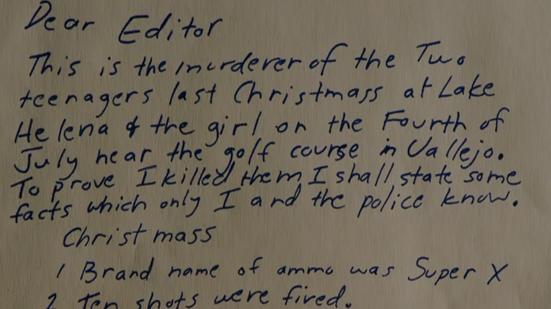 Dear Editor
This is the murderer of the Two
teenagers last Christmass at Lake
Helena & the girl on the Fourth of
July near the golf course in Vallejo.
To prove I killed them I shall state some
facts which only I and the police know.
Christmass
1 Brand name of ammo was Super X
2 Ten shots were fired.